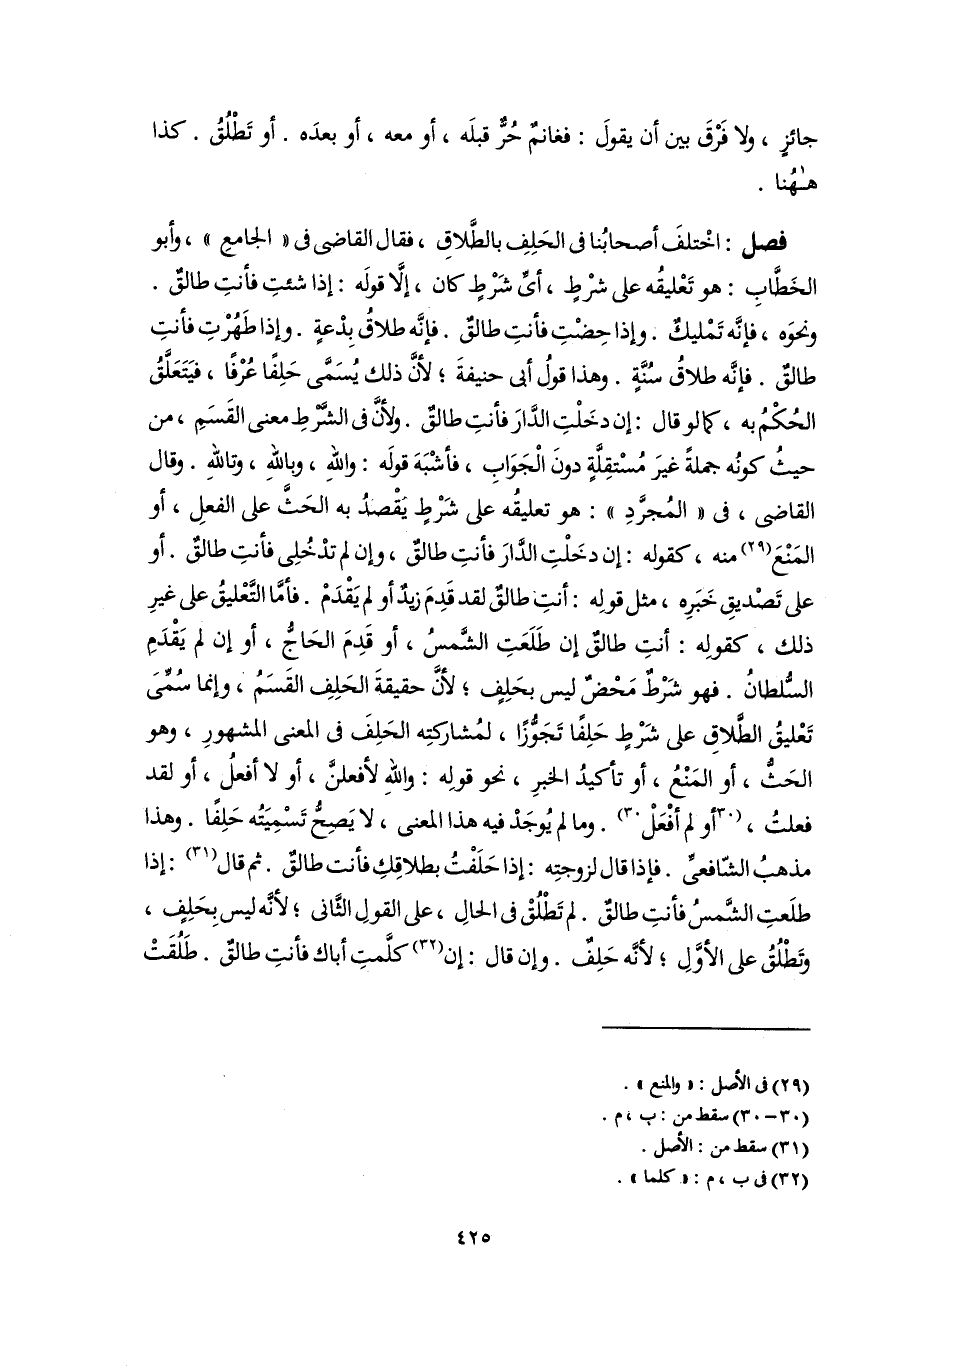 جائزٍ ، ولا فَرْقَ بين أن يقولَ : فغانمٌ حُرٌّ قبلَه ، أو معه ، أو بعدَه . أو تَطْلُقُ . كذا
هـٰهُنا .
فصل : اخْتلفَ أصحابُنا فى الحَلِفِ بالطَّلاقِ ، فقال القاضى فى « الجامعِ » ، وأبو
الخَطَّابِ : هو تَعْليقُه على شرْطٍ ، أىِّ شَرْطٍ كان ، إلَّا قولَه : إذا شئتِ فأنتِ طالقٌ .
ونحوَه ، فإنَّه تَمْليكٌ . وإذا حِضْتِ فأنتِ طالقٌ . فإنَّه طلاقُ بِدْعةٍ . وإذا طَهُرْتِ فأنتِ
طالقٌ . فإنَّه طلاقُ سُنَّةٍ . وهذا قولُ أبى حنيفةَ ؛ لأنَّ ذلك يُسَمَّى حَلِفًا عُرْفًا ، فيَتَعَلَّقُ
الحُكْمُ به ، كما لو قال : إن دخَلْتِ الدَّارَ فأنتِ طالقٌ . ولأنَّ فى الشَّرْطِ معنى القَسَمِ ، من
حيثُ كونُه جملةً غيرَ مُسْتقِلَّةٍ دونَ الْجَوَابِ ، فأشْبَهَ قولَه : واللهِ ، وباللهِ ، وتاللهِ . وقال
القاضى ، فى « المُجرَّدِ » : هو تعليقُه على شَرْطٍ يَقْصدُ به الحَثَّ على الفعلِ ، أو
المَنْعَ(٢٩) منه ، كقوله : إن دخَلْتِ الدَّارَ فأنتِ طالقٌ ، وإن لم تدْخُلِى فأنتِ طالقٌ . أو
على تَصْديقِ خَبَرِه ، مثل قولِه : أنتِ طالقٌ لقد قَدِمَ زيدٌ أو لم يَقْدَمْ . فأمَّا التَّعْليقُ على غيرِ
ذلك ، كقولِه : أنتِ طالقٌ إن طَلَعَتِ الشَّمسُ ، أو قَدِمَ الحَاجُّ ، أو إن لم يَقْدَمِ
السُّلطانُ . فهو شَرْطٌ مَحْضٌ ليس بحَلِفٍ ؛ لأنَّ حقيقةَ الحَلِفِ القَسَمُ ، وإنما سُمِّىَ
تَعْليقُ الطَّلاقِ على شَرْطٍ حَلِفًا تَجَوُّزًا ، لمُشاركتِه الحَلِفَ فى المعنى المشهورِ ، وهو
الحَثُّ ، أو المَنْعُ ، أو تأكيدُ الخبرِ ، نحو قولِه : واللهِ لأفعلنَّ ، أو لا أفعلُ ، أو لقد
فعلتُ ، (٣٠أو لم أفْعَلْ٣٠) . وما لم يُوجَدْ فيه هذا المعنى ، لا يَصِحُّ تَسْمِيَتُه حَلِفًا . وهذا
مذهبُ الشَّافعىِّ . فإذا قال لزوجتِه : إذا حَلَفْتُ بطلاقِكِ فأنت طالقٌ . ثم قال(٣١) : إذا
طلَعتِ الشَّمسُ فأنتِ طالقٌ . لم تَطْلُقْ فى الحالِ ، على القولِ الثَّانى ؛ لأنَّه ليس بِحَلِفٍ ،
وتَطْلُقُ على الأوَّلِ ؛ لأنَّه حَلِفٌ . وإن قال : إن(٣٢) كلَّمتِ أباك فأنتِ طالقٌ . طَلُقَتْ
(٢٩) فى الأصل : « والمنع » .
(٣٠-٣٠) سقط من : ب ، م .
(٣١) سقط من : الأصل .
(٣٢) فى ب ، م : « كلما » .
٤٢٥